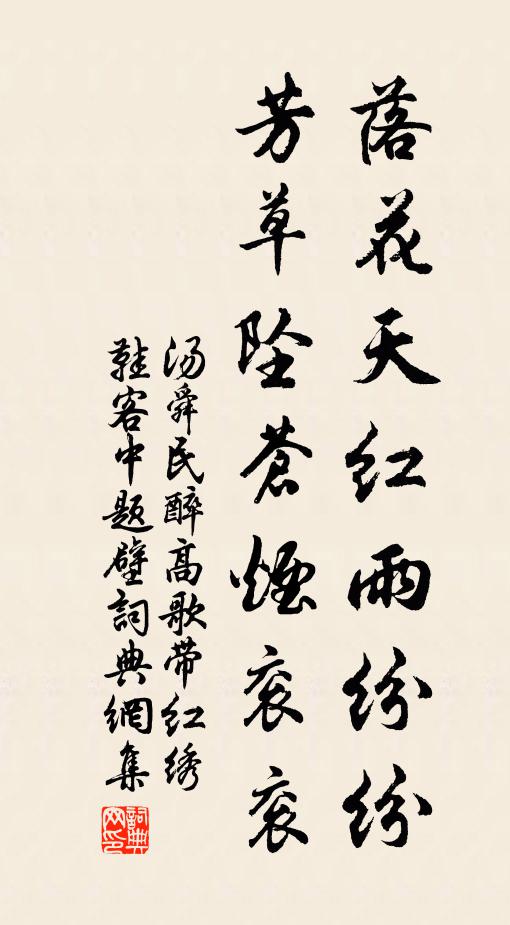 落花天红雨纷纷
芳草坠苍煙衮衮
汤舜民醉高歌带红绣
鞋客中题壁詞典網集
詞典网印